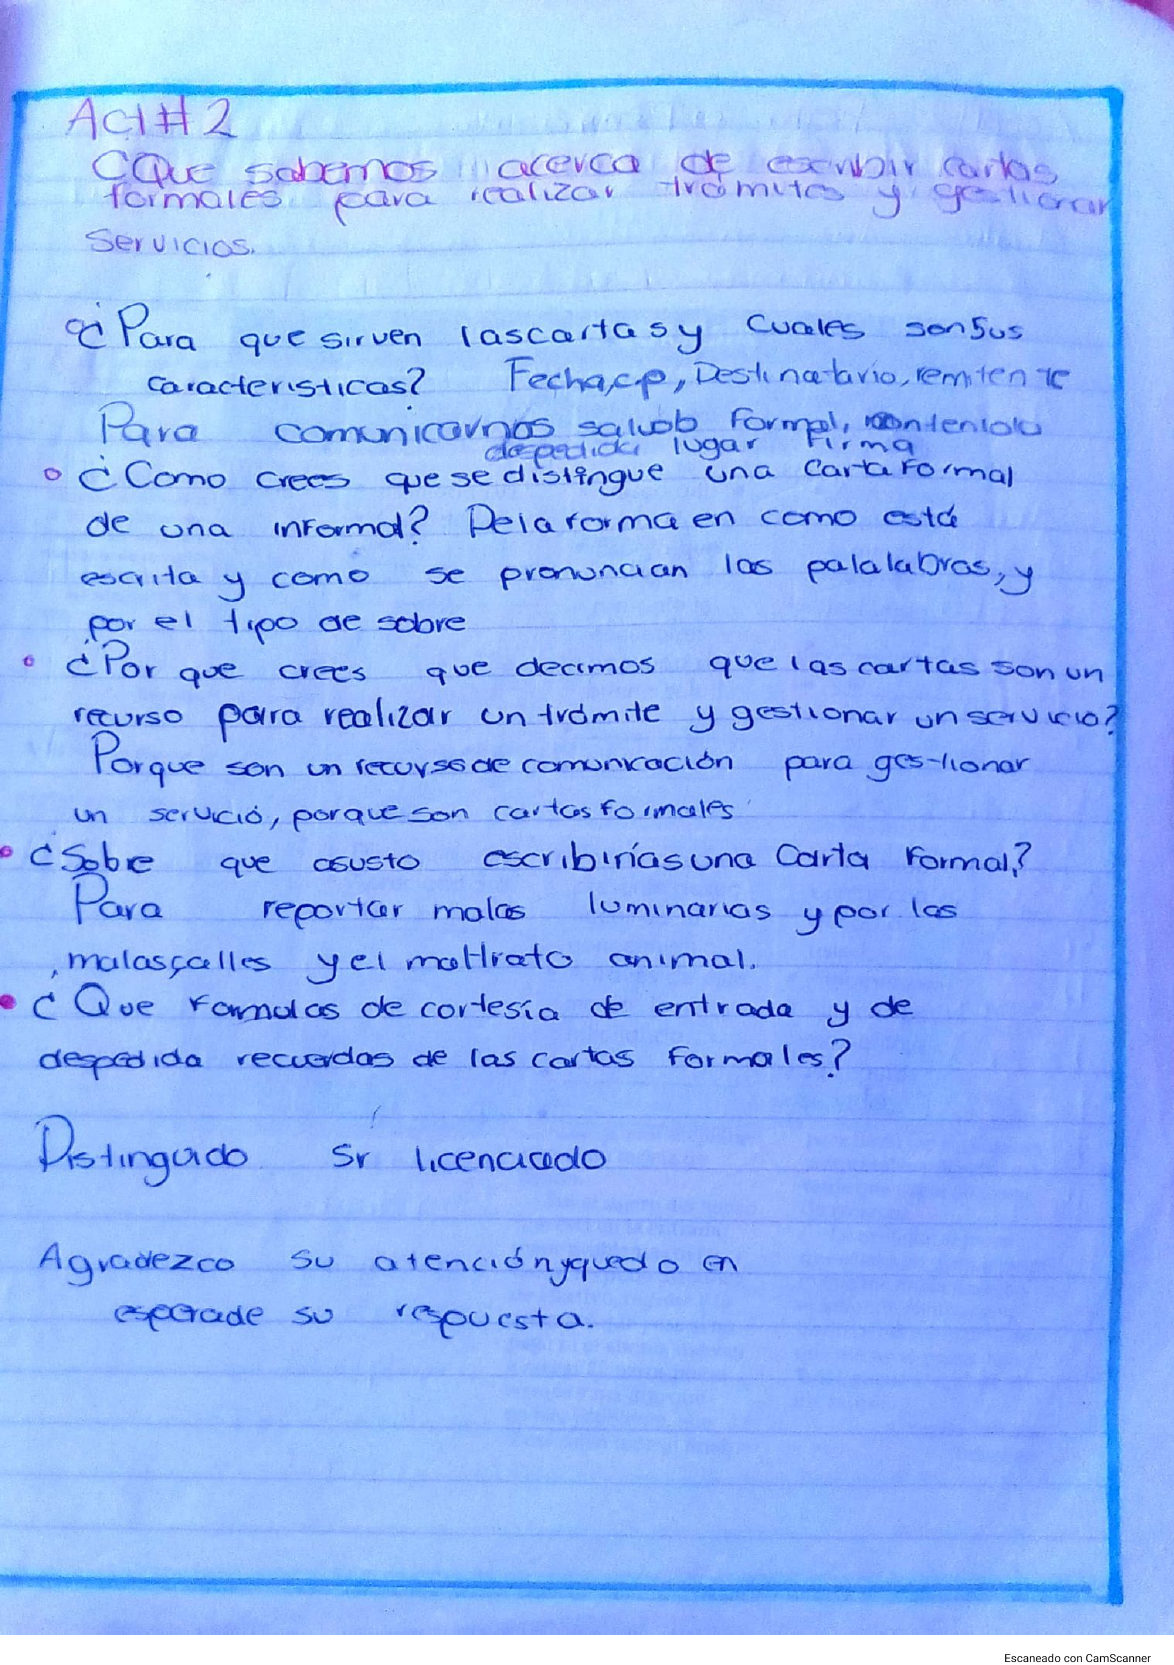 Act# 2
¿Que sabemos acerca de escribir cartas
formales para realizar tramites y gestionar
Servicios.
¿Para que sirven las cartas y cuales son sus
caracteristicas? Fecha, c.p, Destinatario, remitente
Para comunicarnos saludo formal, contenido
despedida lugar firma
¿Como crees que se distingue una carta formal
de una informal? De la forma en como está
escrita y como se pronuncian las palalabras, y
por el tipo de sobre
¿Por que crees que decimos que las cartas son un
recurso para realizar un trámite y gestionar un servicio?
Porque son un recurso de comunicación para gestionar
un servició, porque son cartas formales
¿Sobre que asusto escribirías una Carta formal?
Para reportar malas luminarias y por las
malas calles y el maltrato animal.
¿Que formulas de cortesía de entrada y de
despedida recuerdas de las cartas formales?
Distinguido Sr licenciado
Agradezco su atención y quedo en
espera de su respuesta.
Escaneado con CamScanner